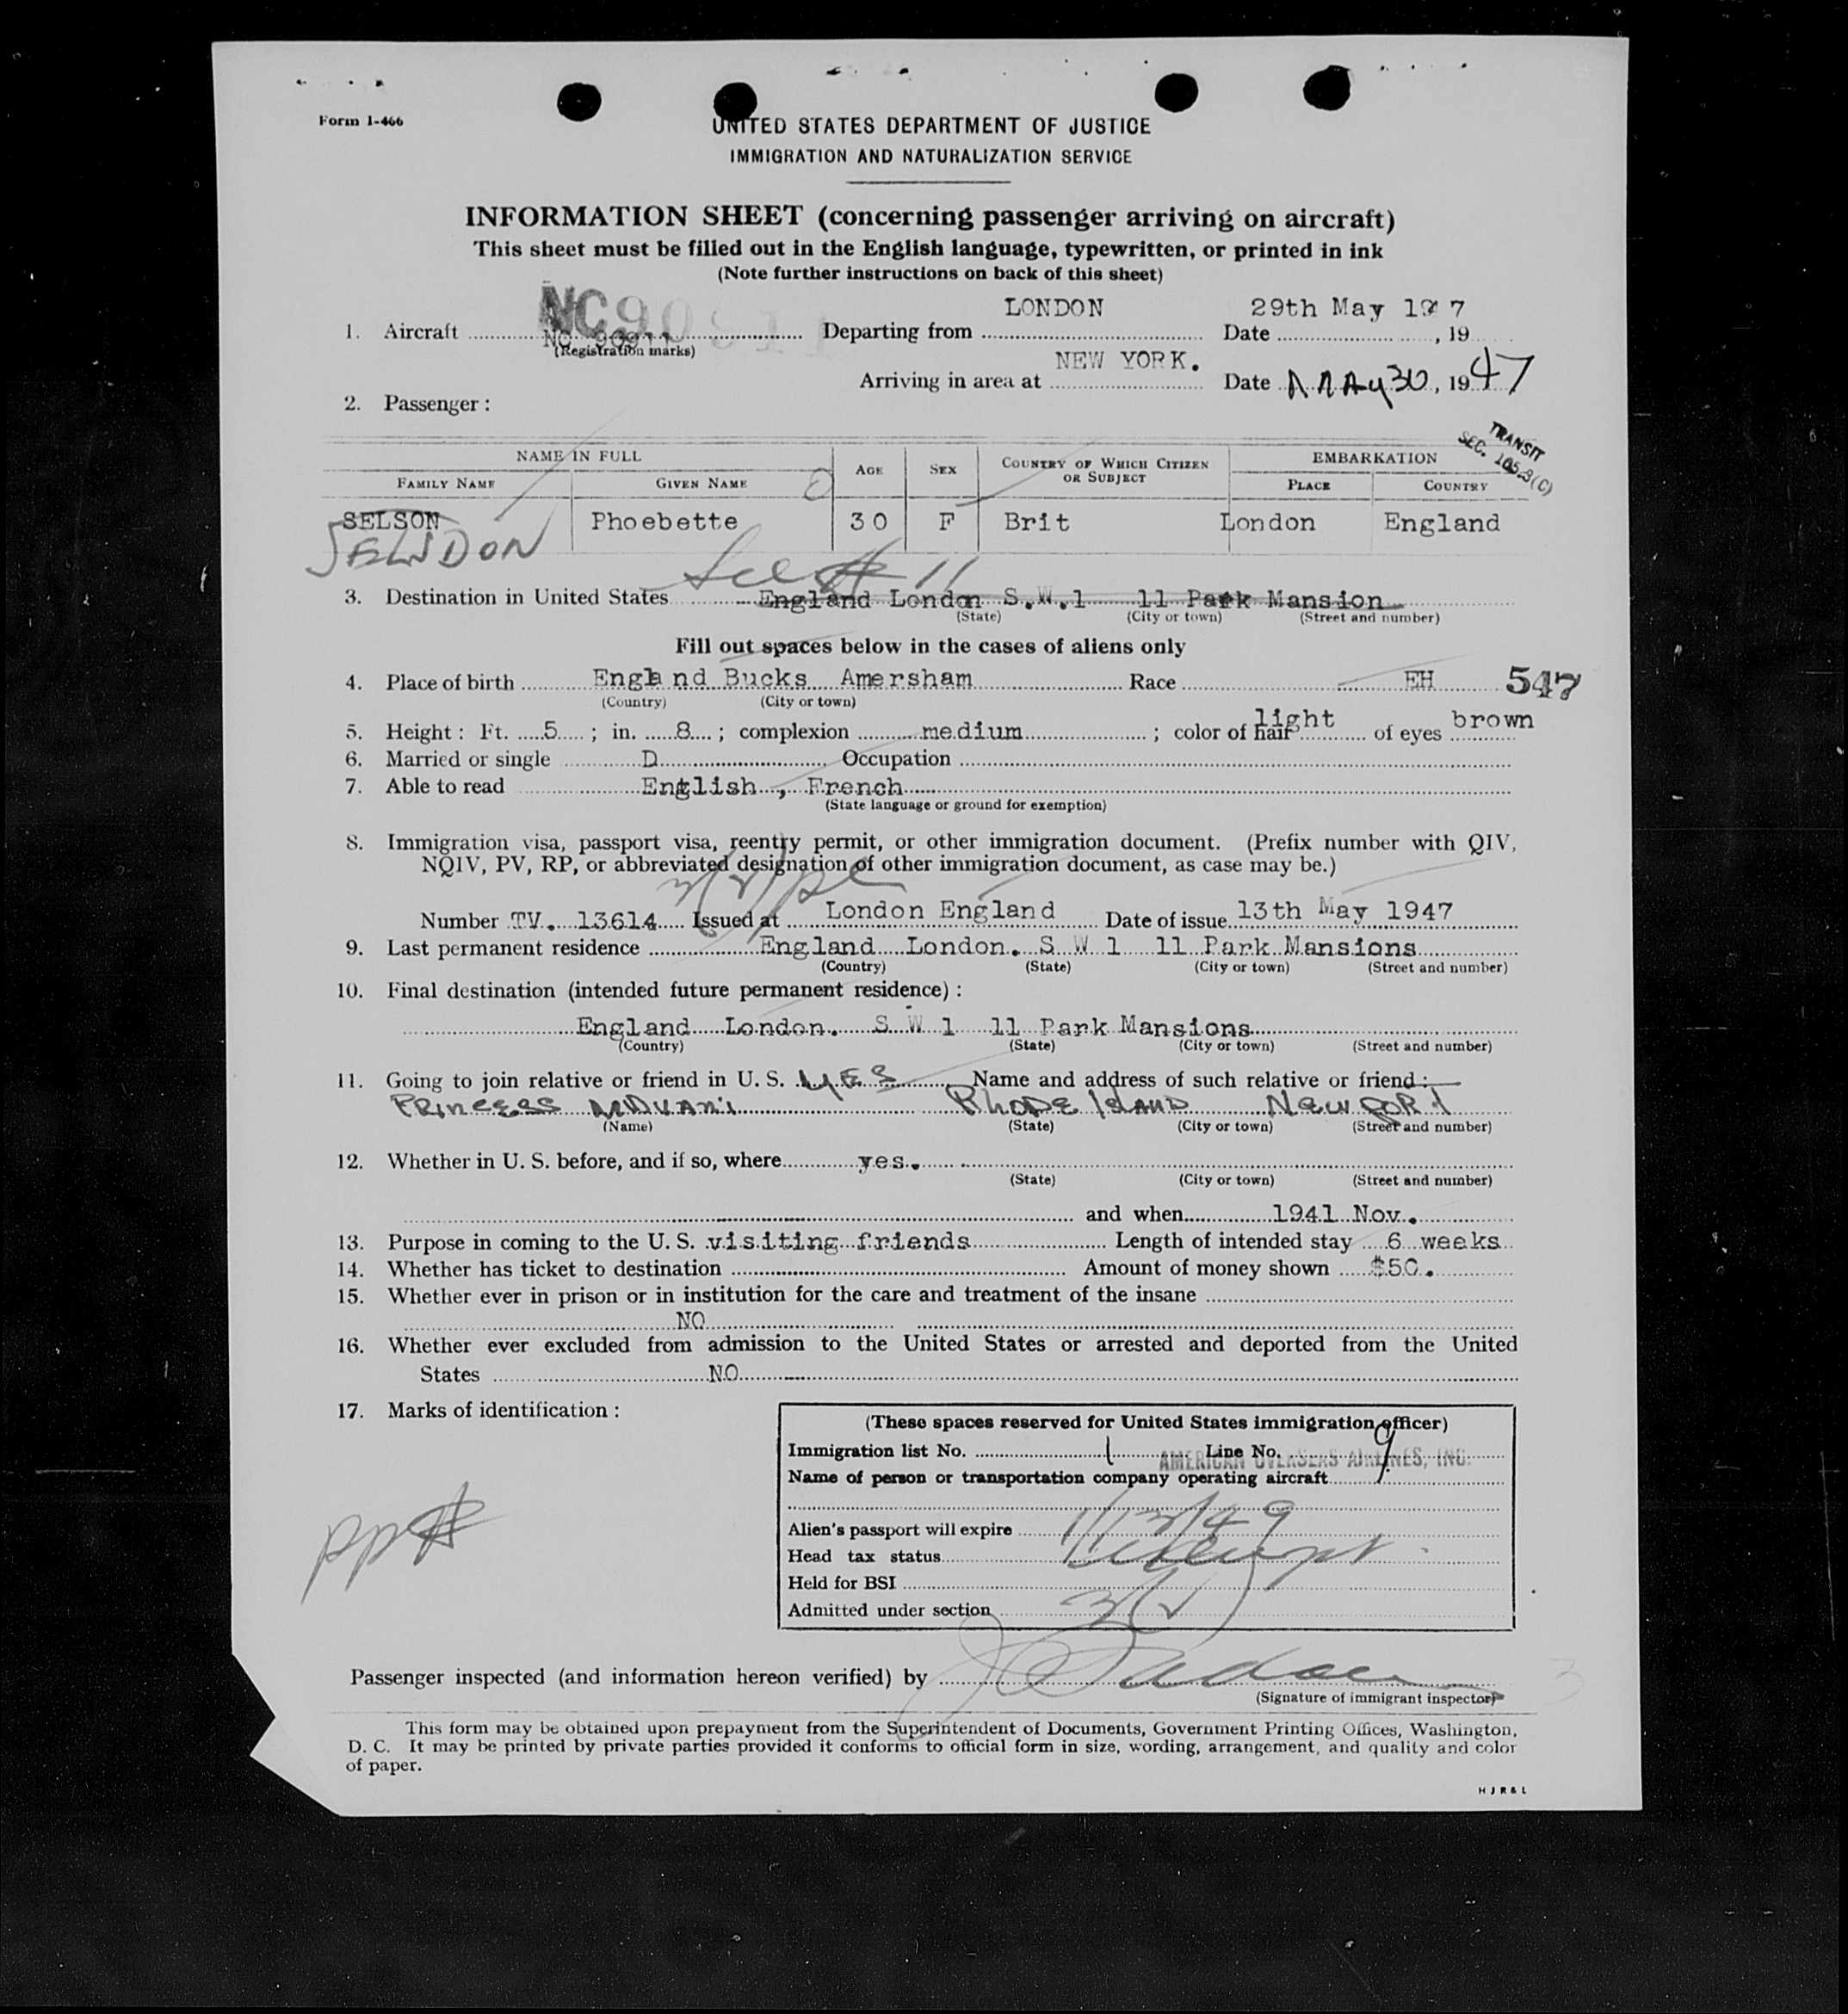 Form I-466
UNITED STATES DEPARTMENT OF JUSTICE
IMMIGRATION AND NATURALIZATION SERVICE
INFORMATION SHEET (concerning passenger arriving on aircraft)
This sheet must be filled out in the English language, typewritten, or printed in ink
(Note further instructions on back of this sheet)
NC90911
LONDON 29th May 1947
1. Aircraft NC 90911 Departing from Date , 19
(Registration marks)
NEW YORK.
Arriving in area at Date MAy 30, 1947
2. Passenger :
TRANSIT
SEC. 105.3(C)
NAME IN FULL AGE SEX COUNTRY OF WHICH CITIZEN OR SUBJECT EMBARKATION
FAMILY NAME GIVEN NAME PLACE COUNTRY
SELSON Phoebette 30 F Brit London England
SELSDON
See # 11
3. Destination in United States England London S.W.1 11 Park Mansion
(State) (City or town) (Street and number)
Fill out spaces below in the cases of aliens only
4. Place of birth England Bucks Amersham Race EH 547
(Country) (City or town)
5. Height : Ft. 5 ; in. 8 ; complexion medium ; color of hair light of eyes brown
6. Married or single D Occupation
7. Able to read English , French
(State language or ground for exemption)
8. Immigration visa, passport visa, reentry permit, or other immigration document. (Prefix number with QIV,
NQIV, PV, RP, or abbreviated designation of other immigration document, as case may be.)
Number TV. 13614 Issued at London England Date of issue 13th May 1947
9. Last permanent residence England London. S W 1 11 Park Mansions
(Country) (State) (City or town) (Street and number)
10. Final destination (intended future permanent residence) :
England London. S W 1 11 Park Mansions
(Country) (State) (City or town) (Street and number)
11. Going to join relative or friend in U. S. YES Name and address of such relative or friend :
PRINCESS MDVANI RHODE ISLAND NEWPORT
(Name) (State) (City or town) (Street and number)
12. Whether in U. S. before, and if so, where yes.
(State) (City or town) (Street and number)
and when 1941 Nov.
13. Purpose in coming to the U. S. visiting friends Length of intended stay 6 weeks
14. Whether has ticket to destination Amount of money shown $50.
15. Whether ever in prison or in institution for the care and treatment of the insane
NO
16. Whether ever excluded from admission to the United States or arrested and deported from the United
States NO
17. Marks of identification :
(These spaces reserved for United States immigration officer)
Immigration list No. 1 Line No. 9
AMERICAN OVERSEAS AIRLINES, INC.
Name of person or transportation company operating aircraft
Alien's passport will expire 1/13/49
Head tax status Exempt
Held for BSI
Admitted under section 3(2)
pp#
Passenger inspected (and information hereon verified) by
(Signature of immigrant inspector)
This form may be obtained upon prepayment from the Superintendent of Documents, Government Printing Offices, Washington,
D. C. It may be printed by private parties provided it conforms to official form in size, wording, arrangement, and quality and color
of paper.
H J R & L